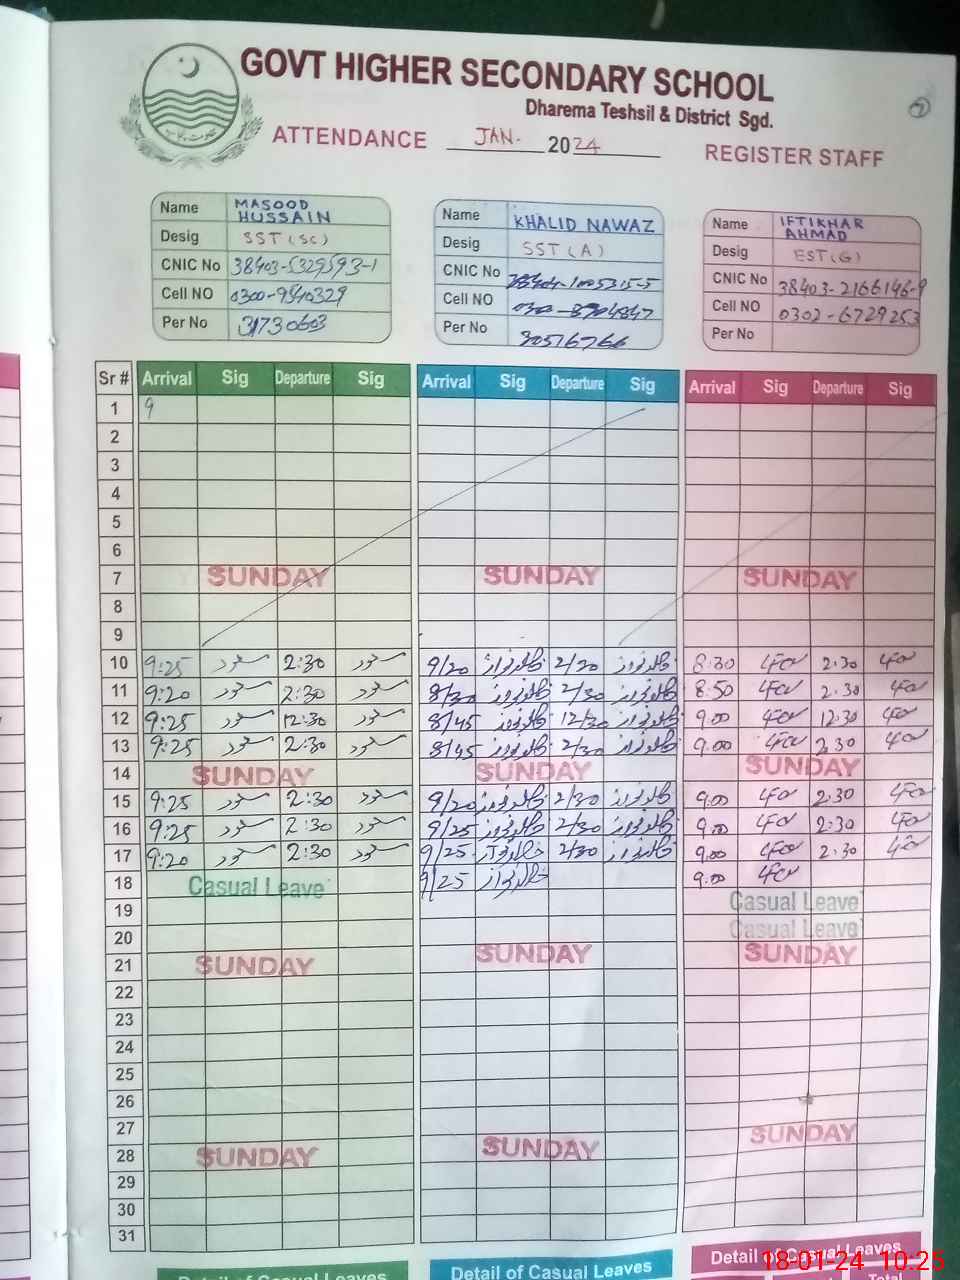 GOVT HIGHER SECONDARY SCHOOL
Dharema Teshsil & District Sgd.
ATTENDANCE JAN. 2024 REGISTER STAFF
Name MASOOD HUSSAIN
Desig SST (SC)
CNIC No 38403-5329593-1
Cell NO 0300-9540329
Per No 31730603
Name KHALID NAWAZ
Desig SST (A)
CNIC No
Cell NO
Per No 30576766
Name IFTIKHAR AHMAD
Desig EST (G)
CNIC No 38403-2166146-9
Cell NO 0302-6729253
Per No
Sr # Arrival Sig Departure Sig Arrival Sig Departure Sig Arrival Sig Departure Sig
1 9
2
3
4
5
6
7 SUNDAY SUNDAY SUNDAY
8
9
10 9:25 مسعود 2:30 مسعود 9/20 خالد نواز 2/20 خالد نواز 8:30 2:30
11 9:20 مسعود 2:30 مسعود 8/30 خالد نواز 2/30 خالد نواز 8:50 2:30
12 9:25 مسعود 12:30 مسعود 8/45 خالد نواز 12/30 خالد نواز 9:00 12:30
13 9:25 مسعود 2:30 مسعود 8/45 خالد نواز 2/30 خالد نواز 9:00 2:30
14 SUNDAY SUNDAY SUNDAY
15 9:25 مسعود 2:30 مسعود 9/20 خالد نواز 2/30 خالد نواز 9:00 2:30
16 9:25 مسعود 2:30 مسعود 9/25 خالد نواز 2/30 خالد نواز 9:00 2:30
17 9:20 مسعود 2:30 مسعود 9/25 خالد نواز 2/30 خالد نواز 9:00 2:30
18 Casual Leave 9/25 خالد نواز 9:00
19 Casual Leave
20 Casual Leave
21 SUNDAY SUNDAY SUNDAY
22
23
24
25
26
27
28 SUNDAY SUNDAY SUNDAY
29
30
31
Detail of Casual Leaves Detail of Casual Leaves Detail of Casual Leaves
Total
18-01-24 10:25